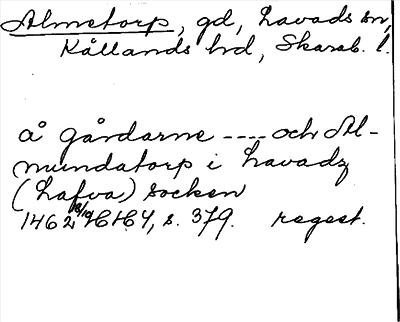 Almetorp, gd, Lavads sn,
Kållands hd, Skarab. l.
å gårdarne ---- och Al-
mundatorp i Lavadz
(Lafva) socken
1462 18/10 HH 4, s. 379. regest.